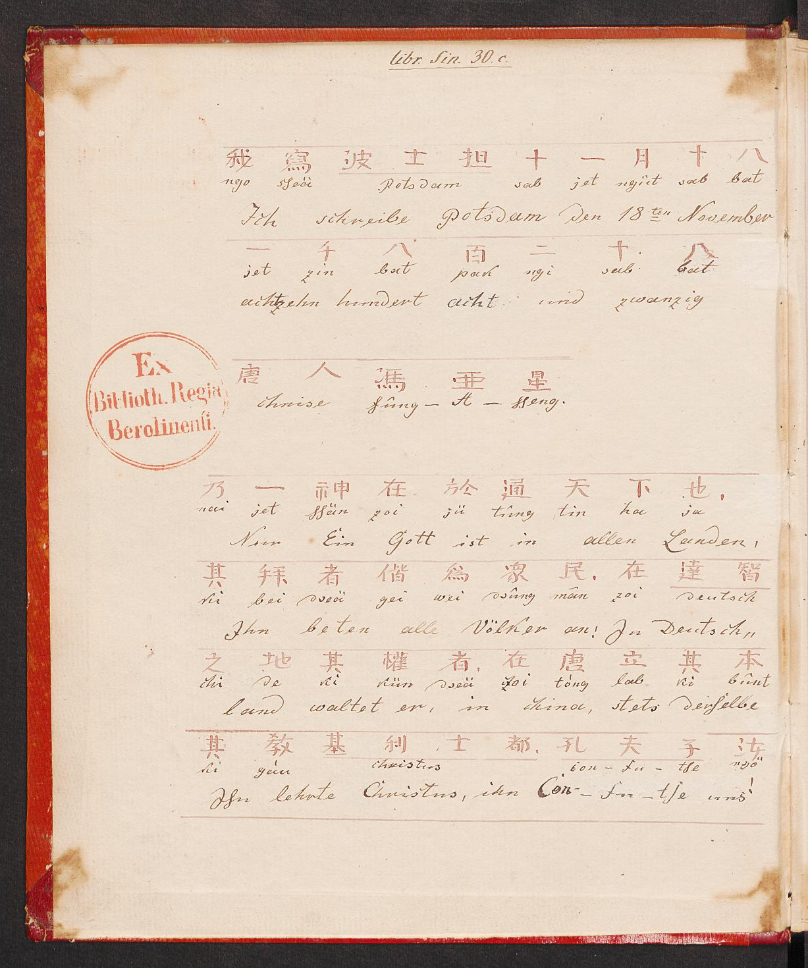 libr. Sin. 30. c.
我 寫 波 士 担 十 一 月 十 八
ngo sseä Potsdam sab jet ngüt sab bat
Ich schreibe Potsdam den 18ten November
一 千 八 百 二 十 八
jet zin bat pak ngi sab bat
achtzehn hundert acht und zwanzig
唐 人 馮 亜 星
chnise Fûng – A – Sseng.
Ex
Biblioth. Regia
Berolinensi.
乃 一 神 在 於 通 天 下 也.
nai jet ssän zoi jü tûng tin ha ja
Nur Ein Gott ist in allen Landen,
其 拜 者 偕 為 眾 民. 在 達 智
ki bei dseä gei wei dsûng mân zoi deutsch
Ihn beten alle Völker an! In Deutsch„
之 地 其 權 者. 在 唐 立 其 本
chi de ki kün dseä zoi tòng lab ki bûnt
land waltet er, in China, stets derselbe
其 教 基 利 士 都. 孔 夫 子
ki gáu christus con – fu – tse ngö
Ihn lehrte Christus, ihn Con – fu – tse uns!